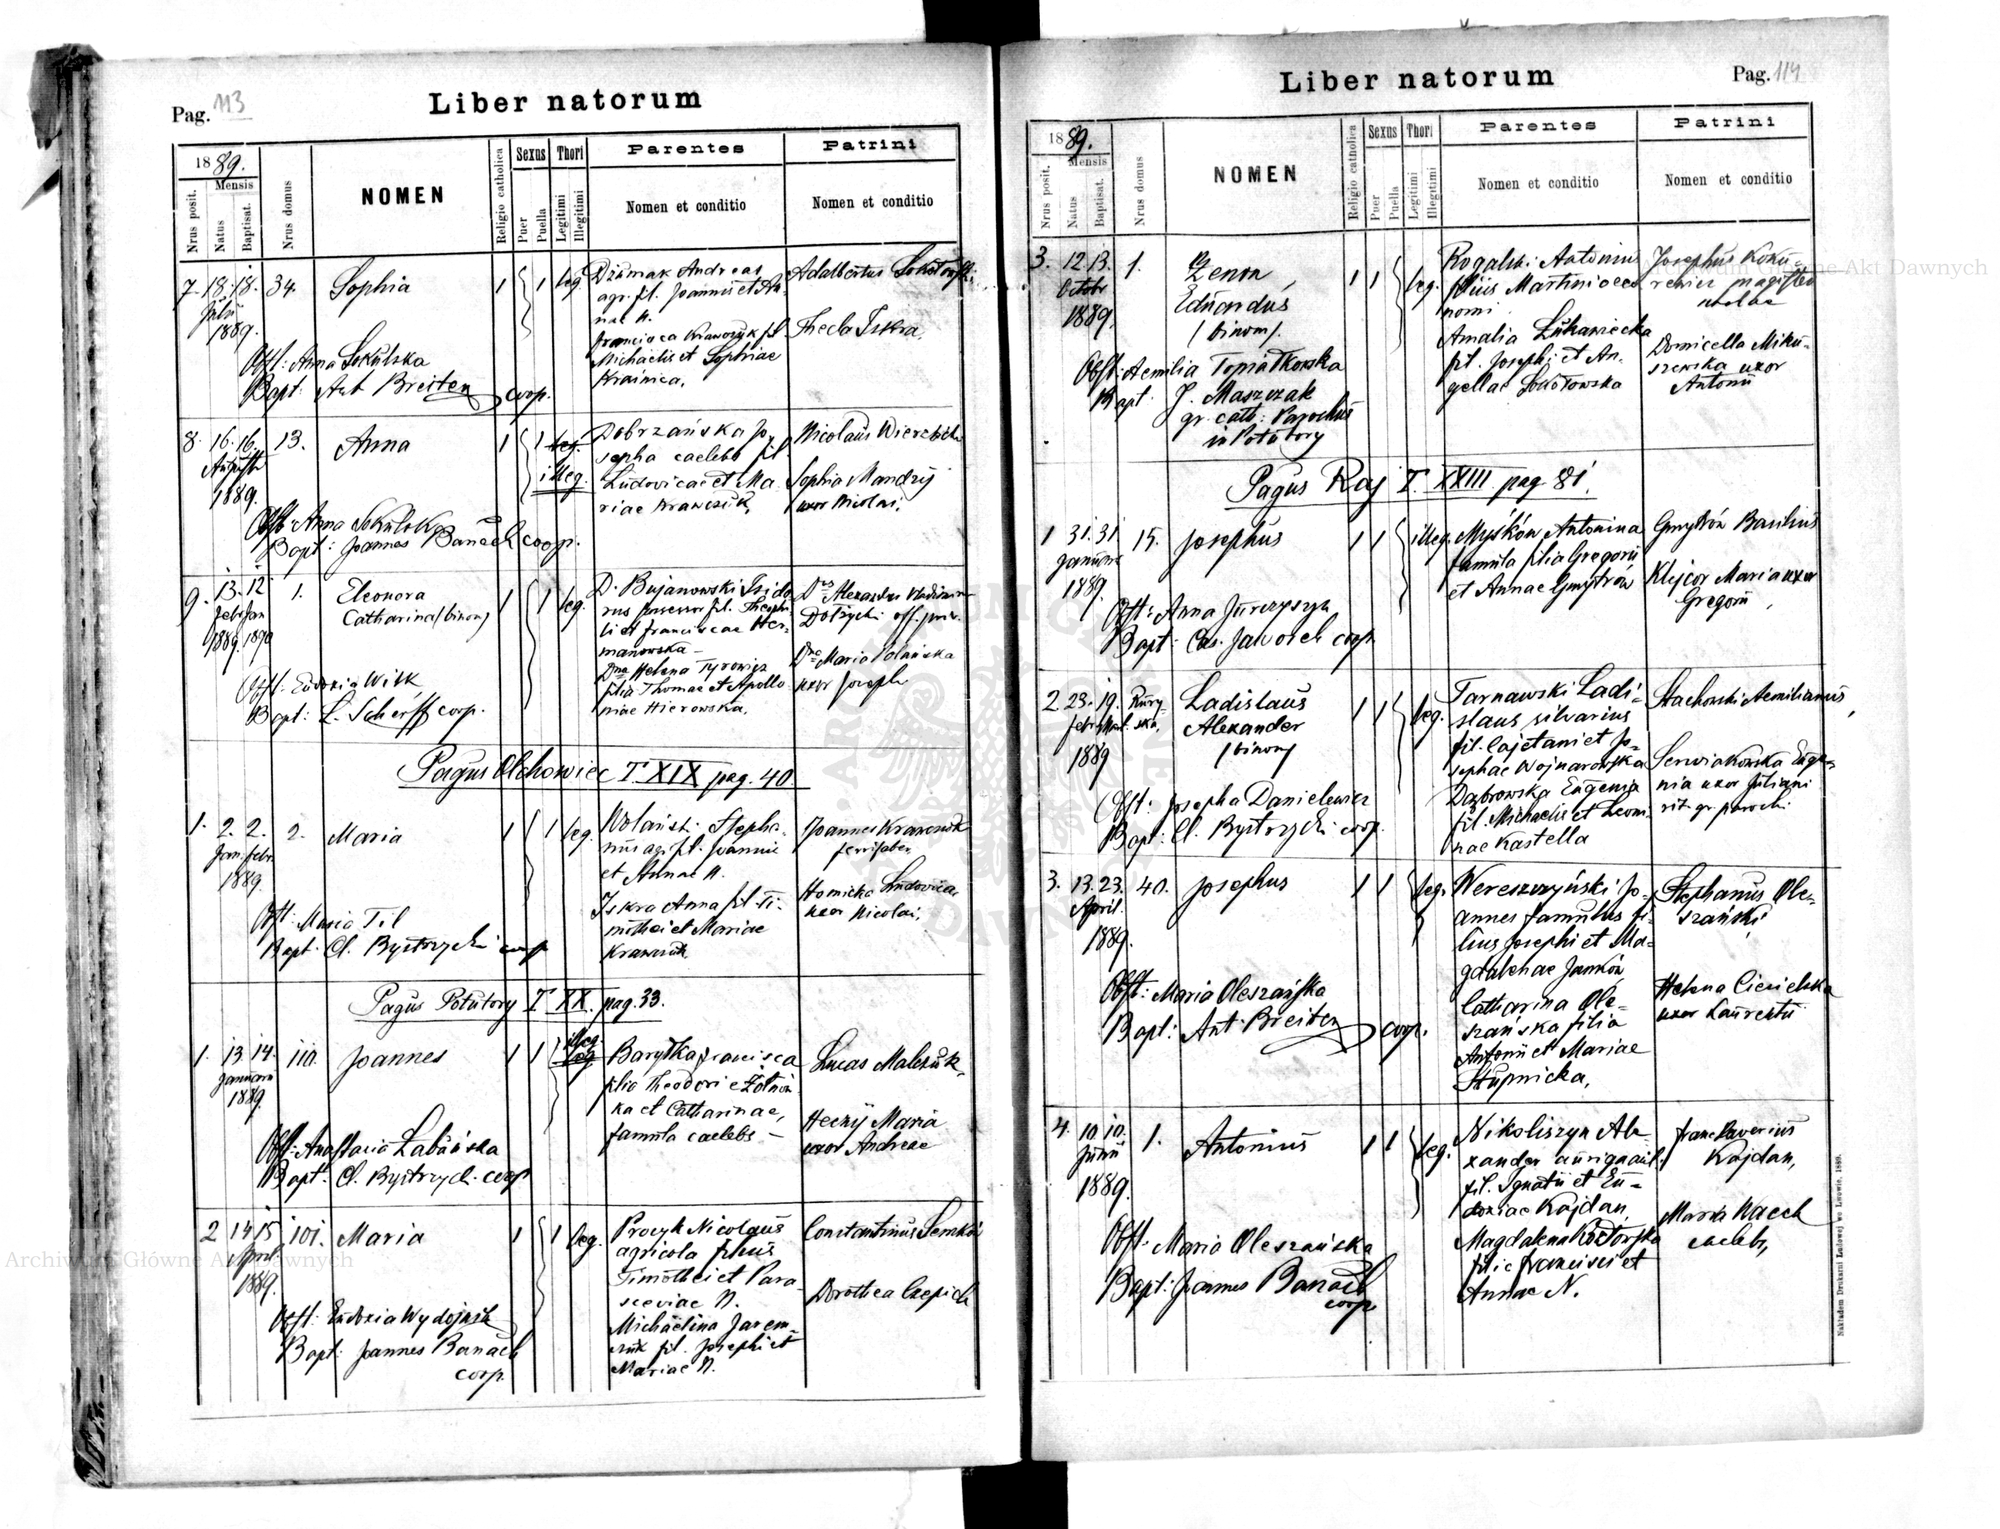 Pag. 113
Liber natorum
1889.
Mensis
Nrus posit.
Natus
Baptisat.
Nrus domus
NOMEN
Religio catholica
Sexus
Puer
Puella
Thori
Legitimi
Illegitimi
Parentes
Nomen et conditio
Patrini
Nomen et conditio
7. 18. 18. 34. Sophia 1 1 leg.
Julii
1889.
Obst: Anna Sokulska
Bapt: Ant Breiten coop.
Dziumak Andreas
agr. fil. Joannis et An-
nae N.
Francisca Krawczuk fil.
Michaelis et Sophiae
Krainica.
Adalbertus
Thecla Iskra.
8. 16. 16. 13. Anna 1 1 leg.
Augusti illeg.
1889.
Obst: Anna Sokulska
Bapt: Joannes Banach coop.
Dobrzańska Jo-
sepha caelebs fil.
Ludovicae et Ma-
riae Krawczuk.
Nicolaus
Sophia Mandzij
uxor Nicolai.
9. 13. 12. 1. Eleonora 1 1 leg.
Febr Jan Catharina (binom)
1889. 1890
Obst: Eudoxia Wilk
Bapt: L. Scherff coop.
D. Bujanowski Isido-
rus possessor fil. Theophi-
li et Franciscae Her-
manowska –
Dna Helena Tyrowicz
filia Thomae et Apollo-
niae Hierowska.
Dnus Alexander
off. priv.
Dna Maria Polańska
uxor Joseph
Pagus Olchowiec T XIX pag. 40
1. 2. 2. 2. Maria 1 1 leg.
Jan. Febr.
1889.
Obst: Maria Til
Bapt: Cl. Bystrzycki coop
Wolański Stepha-
nus agr. fil. Joannis
et Annae N.
Iskra Anna fil. Ti-
mothei et Mariae
Krawczuk
Joannes Krawczuk
Homicka Ludovica
uxor Nicolai.
Pagus Potutory T XX. pag. 33.
1. 13. 14. 110. Joannes 1 1 illeg.
leg
Januarii
1889.
Obst: Anastasia Labańska
Bapt: Cl. Bystrzycki coop
Baryłka Francisca
filia Theodori
ka et Catharinae,
famula caelebs –
Lucas Maleszuk
Maria
uxor Andreae
2 14 15 101. Maria 1 1 leg.
April.
1889.
Obst: Eudoxia
Bapt: Joannes Banach
coop.
Procyk Nicolaus
agricola filius
Timothei et Para-
sceviae N.
Michaelina Jarem-
czuk fil. Josephi et
Mariae N.
Constantinus
Dorothea Czepil
Pag. 114
Liber natorum
1889.
Mensis
Nrus posit.
Natus
Baptisat.
Nrus domus
NOMEN
Religio catholica
Sexus
Puer
Puella
Thori
Legitimi
Illegitimi
Parentes
Nomen et conditio
Patrini
Nomen et conditio
3. 12. 13. 1. Zenon 1 1 leg.
Octobr Eduardus
1889. (binom).
Obst: Aemilia Topiatkowska
Bapt: J. Maszczak
gr. cath: Parochus
in Potutory
Rogalski Antonius
filius Martini oeco-
nomi
Amalia Łukawiecka
fil. Josephi et An-
gelae Sokołowska
Josephus
magister
scholae
Domicella Miku-
szewska uxor
Antonii
Pagus Raj T. XXIII pag. 81.
1 31. 31 15. Josephus 1 1 illeg.
Januarii
1889.
Obst: Anna Jurczyszyn
Bapt: Cas. Jaworek coop
Myśków Antonina
famula filia Gregorii
et Annae Gmytrów
Gmytrów Basilius
Klejcor Maria uxor
Gregorii
2. 23. 19. Ladislaus 1 1 leg.
Febr Alexander
1889 (binom)
Obst: Josepha Danielewicz
Bapt: Cl. Bystrzycki coop.
Tarnawski Ladi-
slaus silvarius
fil. Cajetani et Jo-
sephae Wojnarowska
Dąbrowska Eugenia
fil. Michaelis et Leoni-
nae Kastella
Stachowski Aemilianus
Serwiakowska Euge-
nia uxor Juliani
rit. gr. parochi
3. 13. 23. 40. Josephus 1 1 leg.
April.
1889.
Obst: Maria Oleszańska
Bapt: Ant. Breiten coop.
Wereszczyński Jo-
annes famulus fi-
lius Josephi et Ma-
gdalenae Janków
Catharina Ole-
szańska filia
Antonii et Mariae
Słupnicka.
Stephanus Ole-
szański
Helena Ciesielska
uxor Laurentii
4. 10. 10. 1. Antonius 1 1 leg.
Junii
1889.
Obst: Maria Oleszańska
Bapt: Joannes Banach
coop
Nikoliszyn Ale-
xander
fil. Ignatii et Eu-
doxiae Kajdan
Magdalena
filia Francisci et
Annae N.
Franc Xaverius
Kajdan,
Maria
caelebs,
Nakładem Drukarni Ludowej we Lwowie. 1889.
Archiwum Główne Akt Dawnych
Archiwum Główne Akt Dawnych